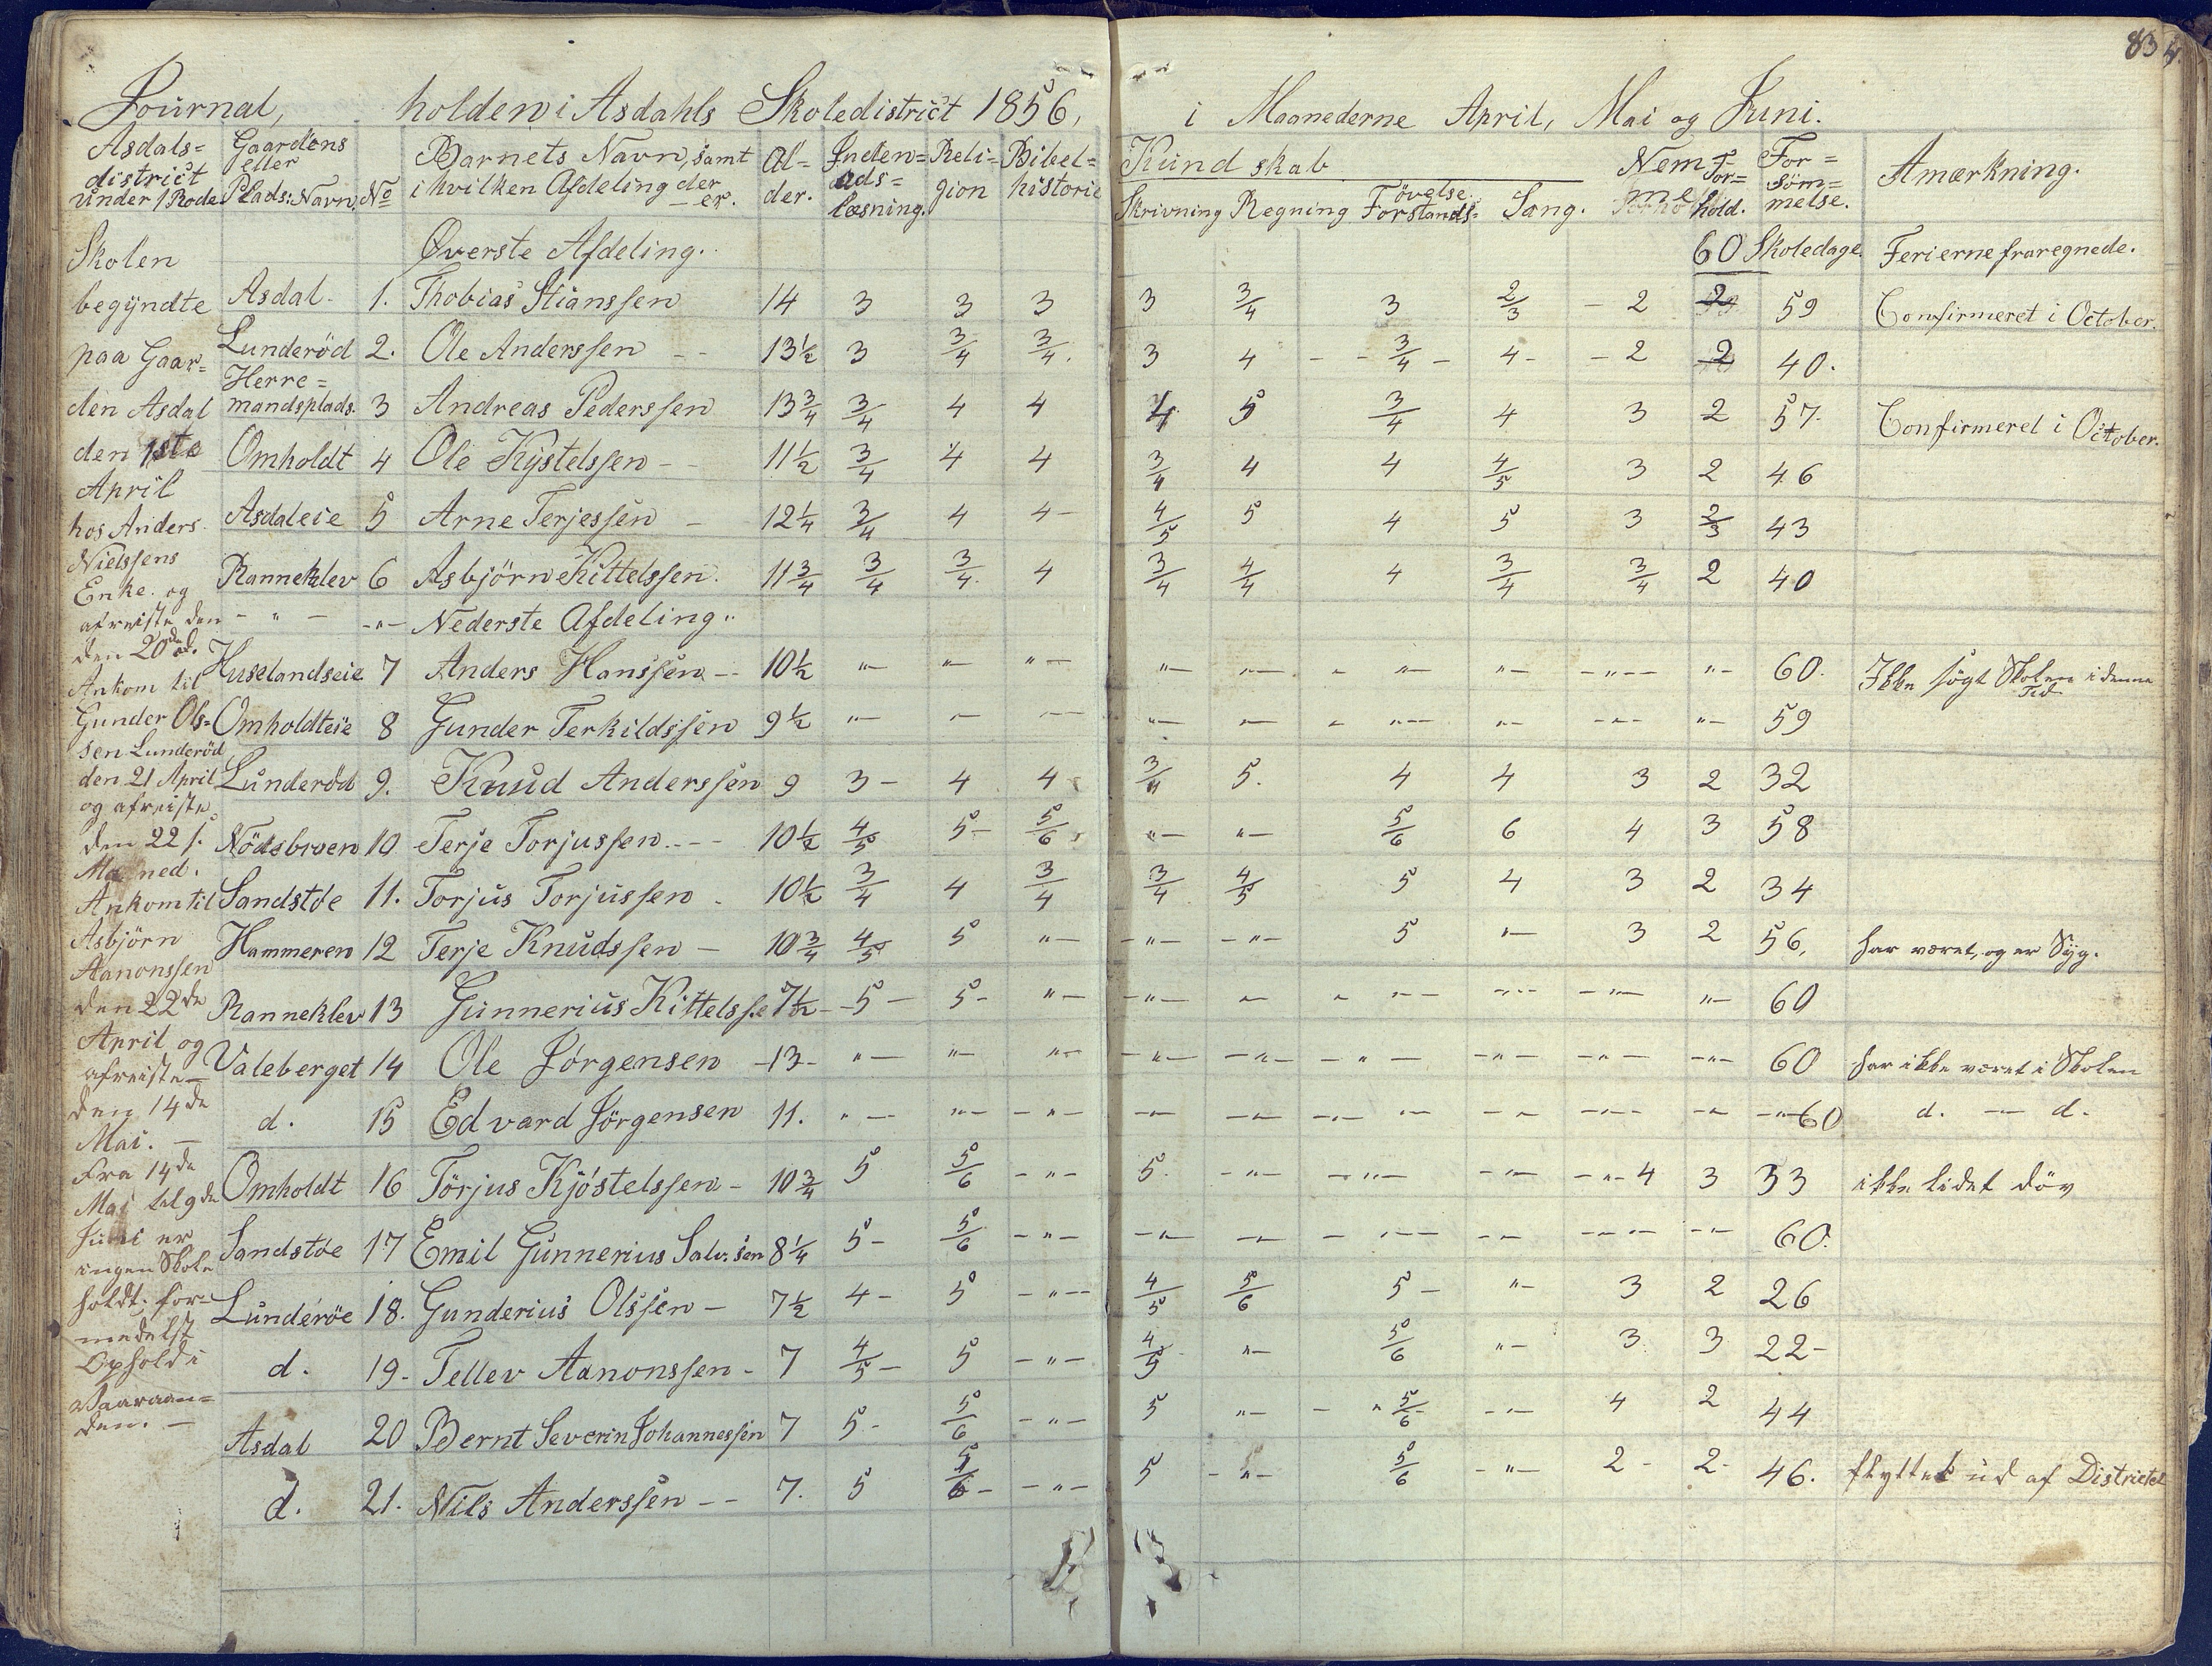 83
Journal, holden i Asdahls Skoledistrict 1856, i Maanederne April, Mai og Juni.
Asdals=
district
under 1 Rode
Gaardens
eller
Plads: Navn.
No
Barnets Navn, samt
i hvilken Afdeling der
er.
Al=
der.
Inden=
ads=
læsning.
Reli=
gion
Bibel=
historie
Kundskab
Skrivning Regning Forstands= øvelse. Sang.
Nem=
me
For=
hold.
For=
söm=
melse.
Amærkning.
Øverste Afdeling. 60 Skoledage. Ferierne fraregnede.
Asdal 1. Thobias Stianssen 14 3 3 3 3 3/4 3 2/3 - 2 2 59 Confirmeret i October.
Lunderöd 2. Ole Anderssen - - 13½ 3 3/4 3/4. 3 4 - - 3/4 - 4 - - 2 2 40.
Herre=
mandsplads. 3 Andreas Pederssen 13¾ 3/4 4 4 4 5 3/4 4 3 2 57. Confirmeret i October.
Omholdt 4 Ole Kystelssen - - 11½ 3/4 4 4 3/4 4 4 4/5 3 2 46
Asdaleie 5 Arne Terjessen - 12¼ 3/4 4 4 - 4/5 5 4 5 3 2/3 43
Ranneklev 6 Asbjörn Kittelssen. 11¾ 3/4 3/4. 4 3/4 4/4 4 3/4 3/4 2 40
- " - -"- Nederste Afdeling.
Huselandseie 7 Anders Hanssen - - 10½ "- "- "- "- "- - "- "- -"- "- 60. Ikke søgt Skolen i denne
Tid
Omholdteie 8 Gunder Terkildssen 9½ "- "- "- "- "- - "- "- -"- "- 59
Lunderöd 9. Knud Anderssen 9 3 - 4 4 3/4 5. 4 4 3 2 32
Nödsbroen 10 Terje Torjussen - - - 10½ 4/5 5 - 5/6 "- "- 5/6 6 4 3 58
Sandstöe 11. Torjus Torjussen - 10½ 3/4 4 3/4 3/4 4/5 5 4 3 2 34
Hammeren 12 Terje Knudssen - 10¾ 4/5 5 "- -"- -"- 5 "- 3 2 56, har været, og er Syg.
Ranneklev 13 Gunnerius Kittelsse 7½ - 5 - 5 - "- -"- "- - "- -"- -"- "- 60
Valeberget 14 Ole Jörgensen - 13 - "- "- "- -"- -"- - " - -"- -"- -"- 60 har ikke været i Skolen
d. 15 Edvard Jörgensen 11. "- "- -"- -"- -"- -"- "- -"- -"- -"- -"- 60 d. - d.
Omholdt 16 Törjus Kjöstelssen - 10¾ 5 5/6 -"- 5. -"- -"- -"- -"- 4 3 33 ikke lidet döv
Sandstöe 17 Emil Gunnerius Salv.sen 8¼ 5 - 5/6 -"- -"- -"- - -"- -"- -"- -"- 60.
Lunderöe 18. Gunderius Olssen - 7½ 4 - 5 -"- 4/5 5/6 5 - "- 3 2 26
d. 19 - Tellev Aanonssen - 7 4/5 - 5 -"- 4/5 "- 5/6 "- 3 3 22 -
Asdal 20 Bernt Severin Johannessen 7 5 - 5/6 -"- 5 "- - " 5/6 -"- 4 2 44
d. 21. Nils Anderssen - - 7. 5 5/6 - -"- 5 -"- 5/6 -"- 2 - 2 - 46. flyttet ud af Districtet
Skolen
begyndte
paa Gaar=
den Asdal
den 1ste
April
hos Anders
Nielssens
Enke. og
afreiste den
den 20de
Ankom til
Gunder Ols=
sen Lunderöd
den 21 April
og afreiste
den 22 s.
Maaned.
Ankom til
Asbjörn
Aanonssen
den 22de
April og
afreiste -
den 14de
Mai. -
Fra 14de
Mai til 9de
Juni er
ingen Skole
holdt, for=
medelst
Ophold i
Vaaraan=
den. -